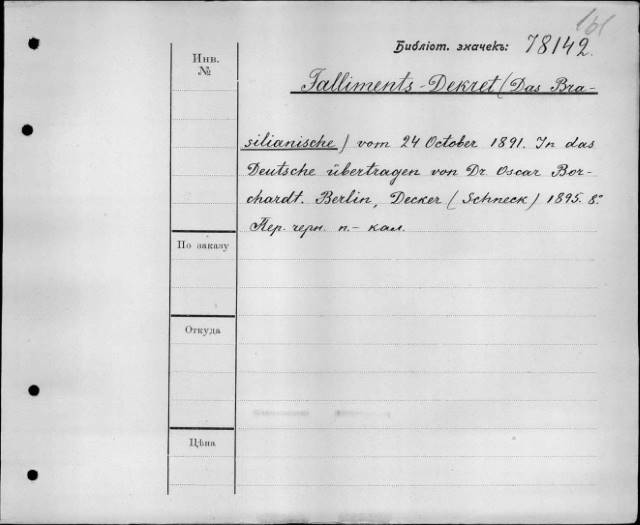 161
Библіот. значекъ: 78142.
Инв.
№
Falliments-Dekret (Das Bra-
silianische) vom 24 October 1891. In das
Deutsche übertragen von Dr. Oscar Bor-
chardt. Berlin, Decker (Schneck) 1895. 8°.
Пер. черн. п.- кал.
По заказу
Откуда
Цѣна